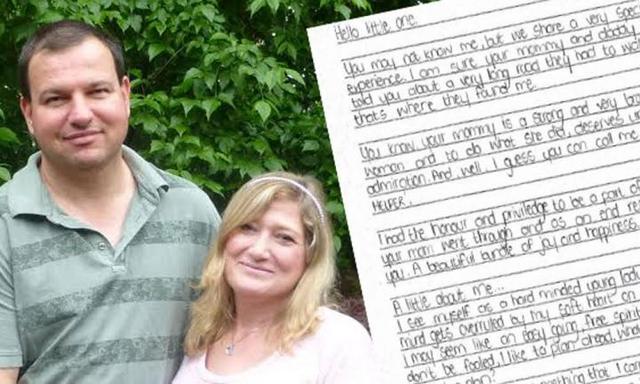 Hello little one
You may not know me, but we share a very
experience. I am sure your mommy and daddy
told you about a very long road they had to
that's where they found me.
You know your mommy is a strong and very
woman and to do what she did, deserves
admiration. And well I guess you can call me
HELPER.
I had the honour and priviledge to be a part
your mom went through and as an end
you. A beautiful bundle of joy and happiness
A little about me...
I see myself as a hard minded young
mind gets overruled by my soft heart
I may seem like an easy going, free
don't be fooled, I like to plan ahead